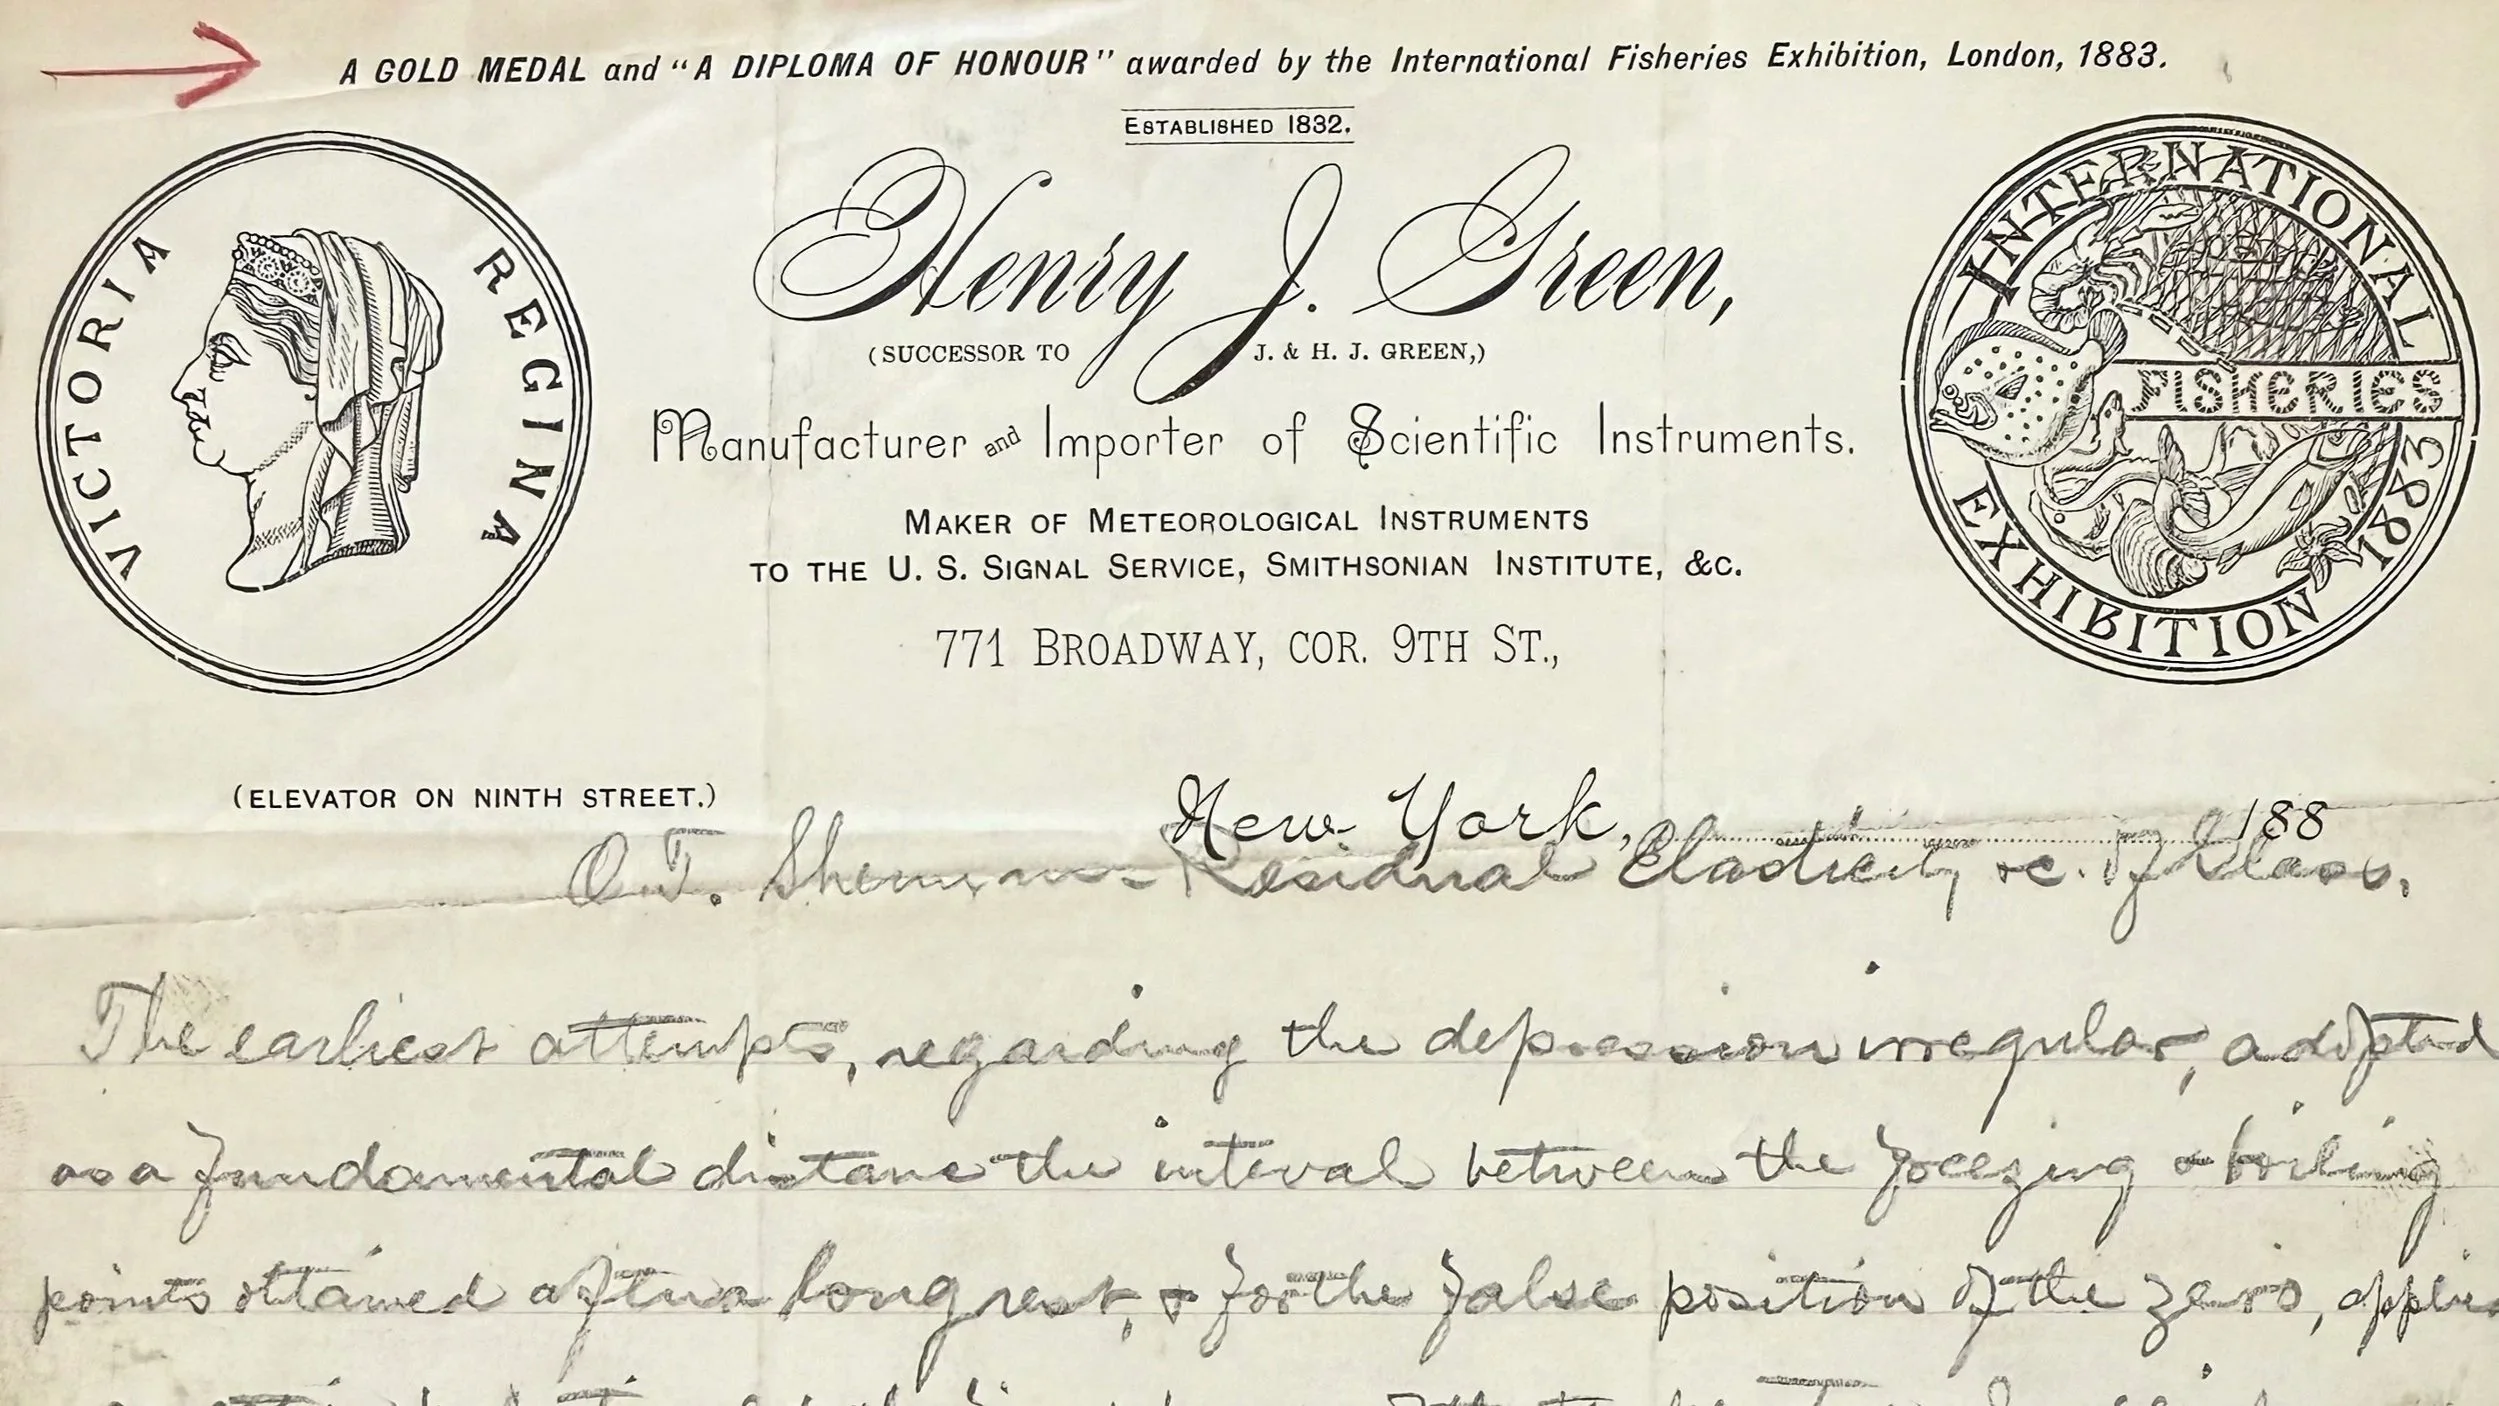 A GOLD MEDAL and "A DIPLOMA OF HONOUR" awarded by the International Fisheries Exhibition, London, 1883.
ESTABLISHED 1832.
VICTORIA REGINA
Henry J. Green,
(SUCCESSOR TO J. & H. J. GREEN,)
INTERNATIONAL
FISHERIES
EXHIBITION 1883
Manufacturer and Importer of Scientific Instruments.
MAKER OF METEOROLOGICAL INSTRUMENTS
TO THE U. S. SIGNAL SERVICE, SMITHSONIAN INSTITUTE, &C.
771 BROADWAY, COR. 9TH ST.,
(ELEVATOR ON NINTH STREET.)
New York, 188
O. T. Sherman Residual Elasticity &c. of Glass.
The earliest attempts, regarding the depression irregular, adopted
as a fundamental distance the interval between the freezing & boiling
points obtained after a long rest, & for the false position of the zero,